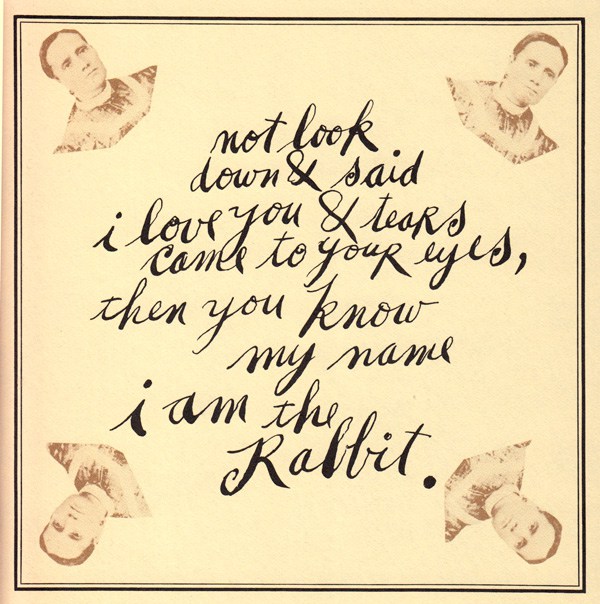 not look
down & said
i love you & tears
came to your eyes,
then you know
my name
i am the
Rabbit.